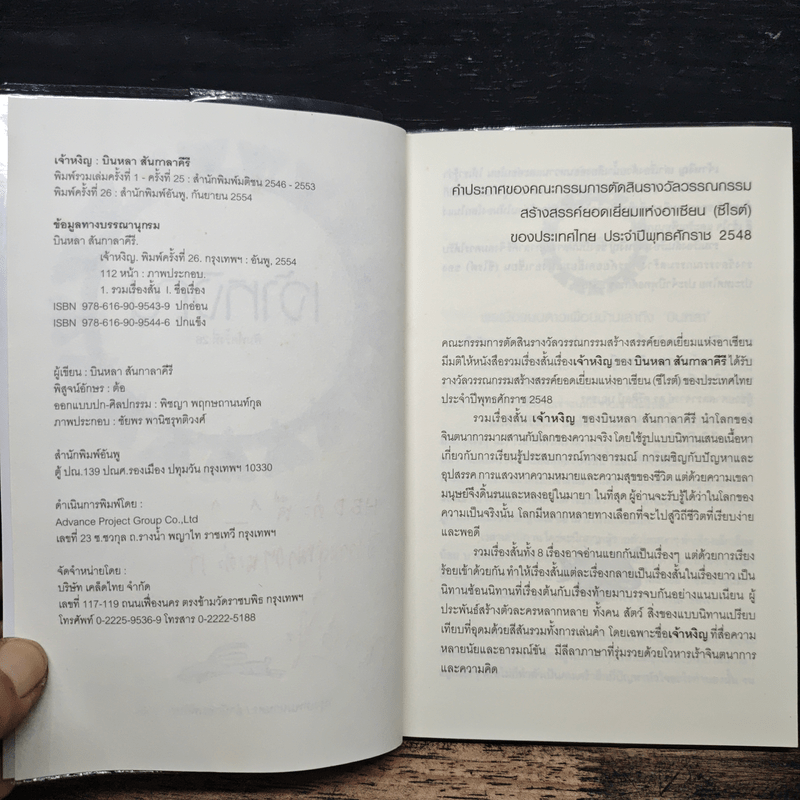 เจ้าหงิญ : บินหลา สันกาลาคีรี
พิมพ์รวมเล่มครั้งที่ 1 - ครั้งที่ 25 : สำนักพิมพ์มติชน 2546 - 2553
พิมพ์ครั้งที่ 26 : สำนักพิมพ์อันพู. กันยายน 2554
ข้อมูลทางบรรณานุกรม
บินหลา สันกาลาคีรี.
เจ้าหงิญ. พิมพ์ครั้งที่ 26. กรุงเทพฯ : อันพู, 2554
112 หน้า : ภาพประกอบ.
1. รวมเรื่องสั้น I. ชื่อเรื่อง
ISBN 978-616-90-9543-9 ปกอ่อน
ISBN 978-616-90-9544-6 ปกแข็ง
ผู้เขียน : บินหลา สันกาลาคีรี
พิสูจน์อักษร : ต้อ
ออกแบบปก-ศิลปกรรม : พิชญา พฤกษถานนท์กุล
ภาพประกอบ : ชัยพร พานิชรุทติวงศ์
สำนักพิมพ์อันพู
ตู้ ปณ.139 ปณศ.รองเมือง ปทุมวัน กรุงเทพฯ 10330
ดำเนินการพิมพ์โดย :
Advance Project Group Co.,Ltd
เลขที่ 23 ซ.ชวกุล ถ.รางน้ำ พญาไท ราชเทวี กรุงเทพฯ
จัดจำหน่ายโดย :
บริษัท เคล็ดไทย จำกัด
เลขที่ 117-119 ถนนเฟื่องนคร ตรงข้ามวัดราชบพิธ กรุงเทพฯ
โทรศัพท์ 0-2225-9536-9 โทรสาร 0-2222-5188
คำประกาศของคณะกรรมการตัดสินรางวัลวรรณกรรม
สร้างสรรค์ยอดเยี่ยมแห่งอาเซียน (ซีไรต์)
ของประเทศไทย ประจำปีพุทธศักราช 2548
คณะกรรมการตัดสินรางวัลวรรณกรรมสร้างสรรค์ยอดเยี่ยมแห่งอาเซียน
มีมติให้หนังสือรวมเรื่องสั้นเรื่องเจ้าหงิญ ของ บินหลา สันกาลาคีรี ได้รับ
รางวัลวรรณกรรมสร้างสรรค์ยอดเยี่ยมแห่งอาเซียน (ซีไรต์) ของประเทศไทย
ประจำปีพุทธศักราช 2548
รวมเรื่องสั้น เจ้าหงิญ ของบินหลา สันกาลาคีรี นำโลกของ
จินตนาการมาผสานกับโลกของความจริง โดยใช้รูปแบบนิทานเสนอเนื้อหา
เกี่ยวกับการเรียนรู้ประสบการณ์ทางอารมณ์ การเผชิญกับปัญหาและ
อุปสรรค การแสวงหาความหมายและความสุขของชีวิต แต่ด้วยความเขลา
มนุษย์จึงดิ้นรนและหลงอยู่ในมายา ในที่สุด ผู้อ่านจะรับรู้ได้ว่าในโลกของ
ความเป็นจริงนั้น โลกมีหลากหลายทางเลือกที่จะไปสู่วิถีชีวิตที่เรียบง่าย
และพอดี
รวมเรื่องสั้นทั้ง 8 เรื่องอาจอ่านแยกกันเป็นเรื่องๆ แต่ด้วยการเรียง
ร้อยเข้าด้วยกัน ทำให้เรื่องสั้นแต่ละเรื่องกลายเป็นเรื่องสั้นในเรื่องยาว เป็น
นิทานซ้อนนิทานที่เรื่องต้นกับเรื่องท้ายมาบรรจบกันอย่างแนบเนียน ผู้
ประพันธ์สร้างตัวละครหลากหลาย ทั้งคน สัตว์ สิ่งของแบบนิทานเปรียบ
เทียบที่อุดมด้วยสีสันรวมทั้งการเล่นคำ โดยเฉพาะชื่อเจ้าหงิญ ที่สื่อความ
หลายนัยและอารมณ์ขัน มีลีลาภาษาที่รุ่มรวยด้วยโวหารเร้าจินตนาการ
และความคิด